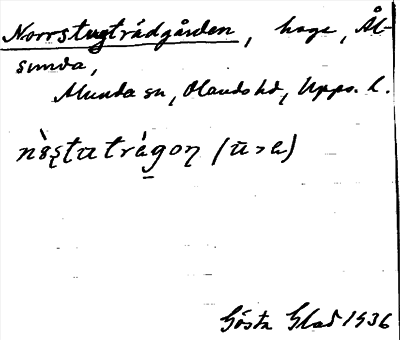 Norrstugträdgården, hage, Ål-
sunda,
Alunda sn, Olands hd, Upps. l.
nòʂtutrágoɳ (u>a)
Gösta Glad 1936